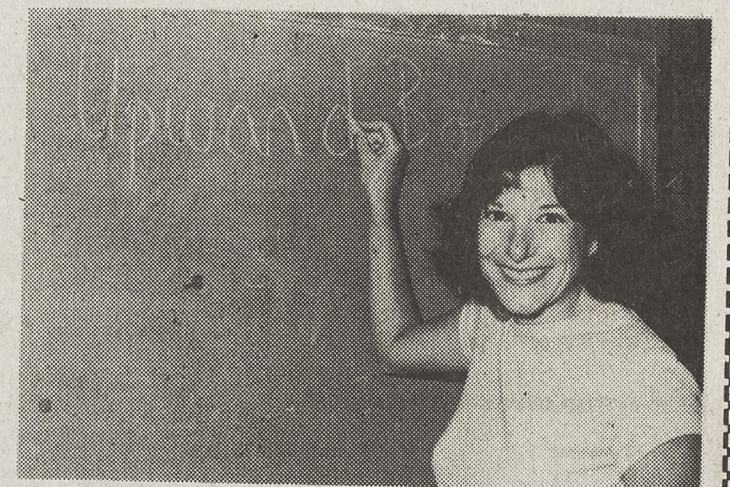 Upward B